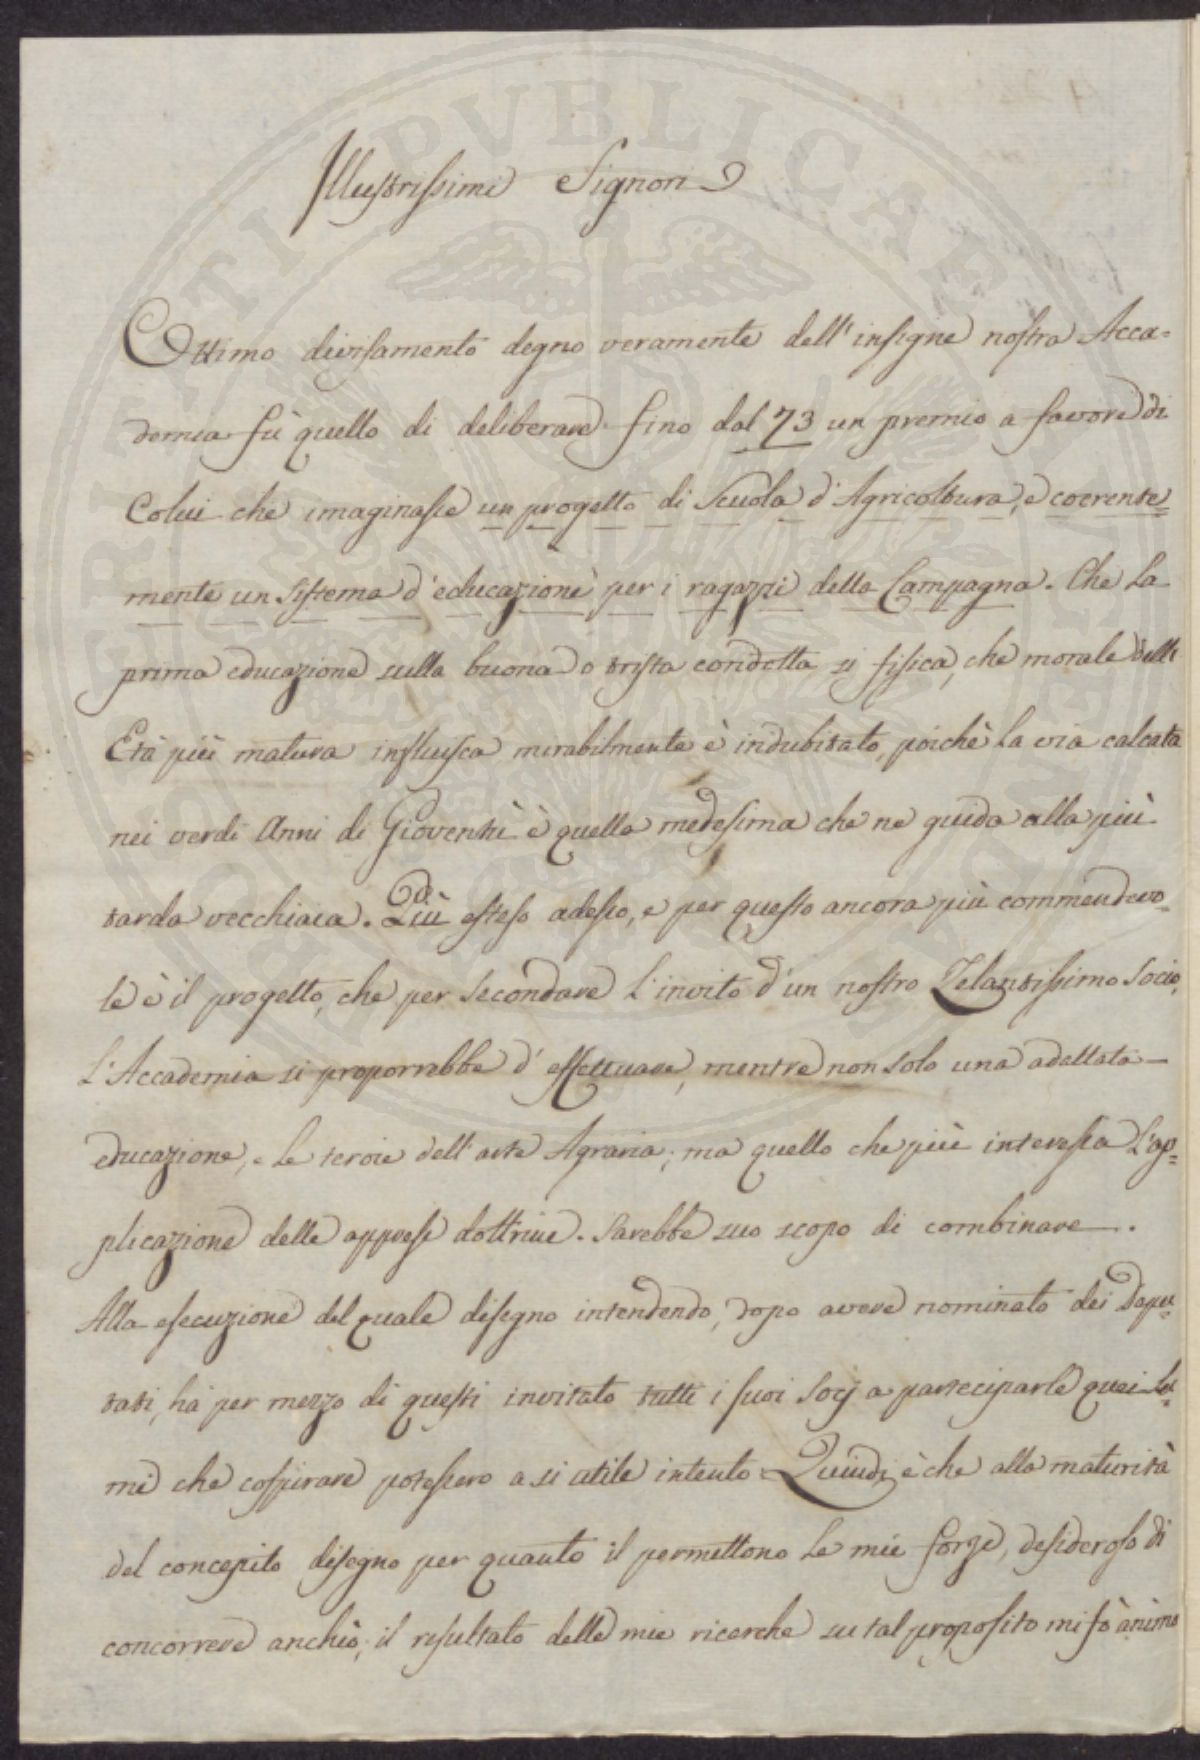 Illustrissimi Signori
Ottimo divisamento degno veramente dell'insigne nostra Acca=
demia fù quello di deliberare fino dal 73 un premio a favore di
Colui che imaginasse un progetto di Scuola d'Agricoltura, e coerente=
mente un sistema d'educazione per i ragazzi della Campagna. Che la
prima educazione sulla buona o trista condotta si fisica, che morale dell'
Età più matura influisca mirabilmente è indubitato, poichè la via calcata
nei verdi Anni di Gioventù è quella medesima che ne guida alla più
tarda vecchiaia. Più esteso adesso, e per questo ancora più commendevo=
le è il progetto, che per secondare l'invito d'un nostro Zelantissimo Socio,
L'Accademia si proporrebbe d'effettuare, mentre non solo una adattata
educazione, e le teroie dell'arte Agraria; ma quello che più interessa l'ap=
plicazione delle apprese dottrine. Sarebbe suo scopo di combinare.
Alla esecuzione del quale disegno intendendo, dopo avere nominato dei Depu=
tati, ha per mezzo di questi invitato tutti i suoi Socj a parteciparle quei lu=
mi che cospirare potessero a si utile intento. Quindi è che alla maturità
del concepito disegno per quanto il permettono le mie forze, desideroso di
concorrere anchio, il resultato delle mie ricerche su tal proposito mi fò ànimo